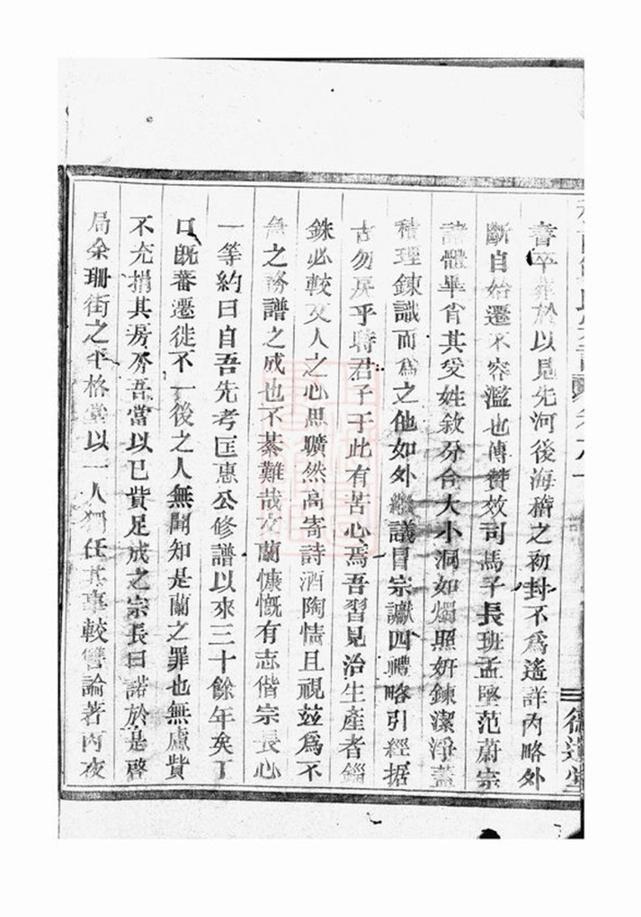 書卒葬於以見先河後海稽之初封不爲遙詳內略外
斷自始遷不容濫也傳贊效司馬子長班孟堅范蔚宗
諸體畢省其受姓敘分合大小洞如燭照妍鍊潔淨蓋
積理鍊識而爲之他如外繼議冒宗讞四禮略引經据
古勿戾乎時君子于此有苦心焉吾習見治生產者錙
銖必較文人之心思曠然高寄詩酒陶情且視茲爲不
急之務譜之成也不綦難哉文蘭慷慨有志偕宗長心
一等約曰自吾先考匡惠公修譜以來三十餘年矣丁
口既蕃遷徙不一後之人無聞知是蘭之罪也無慮貲
不充捐其房所吾當以已貲足成之宗長曰諾於是啓
局余珊街之平格堂以一人獨任其事較讐論著丙夜
堂